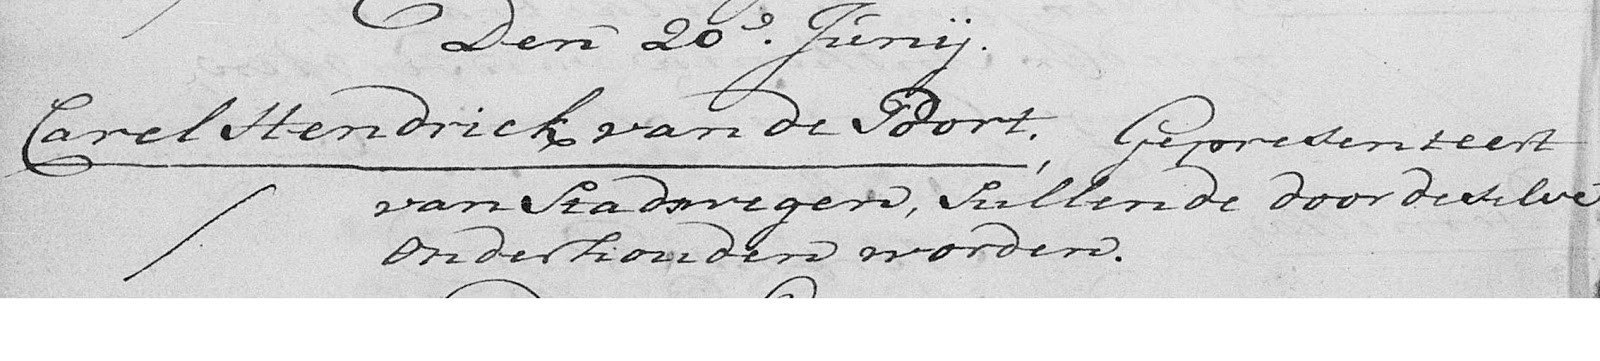 Den 20.d Junij.
Carel Hendrick van de Poort, Gepresenteert
van Stadswegen, Sullende door deselve
onderhouden worden.